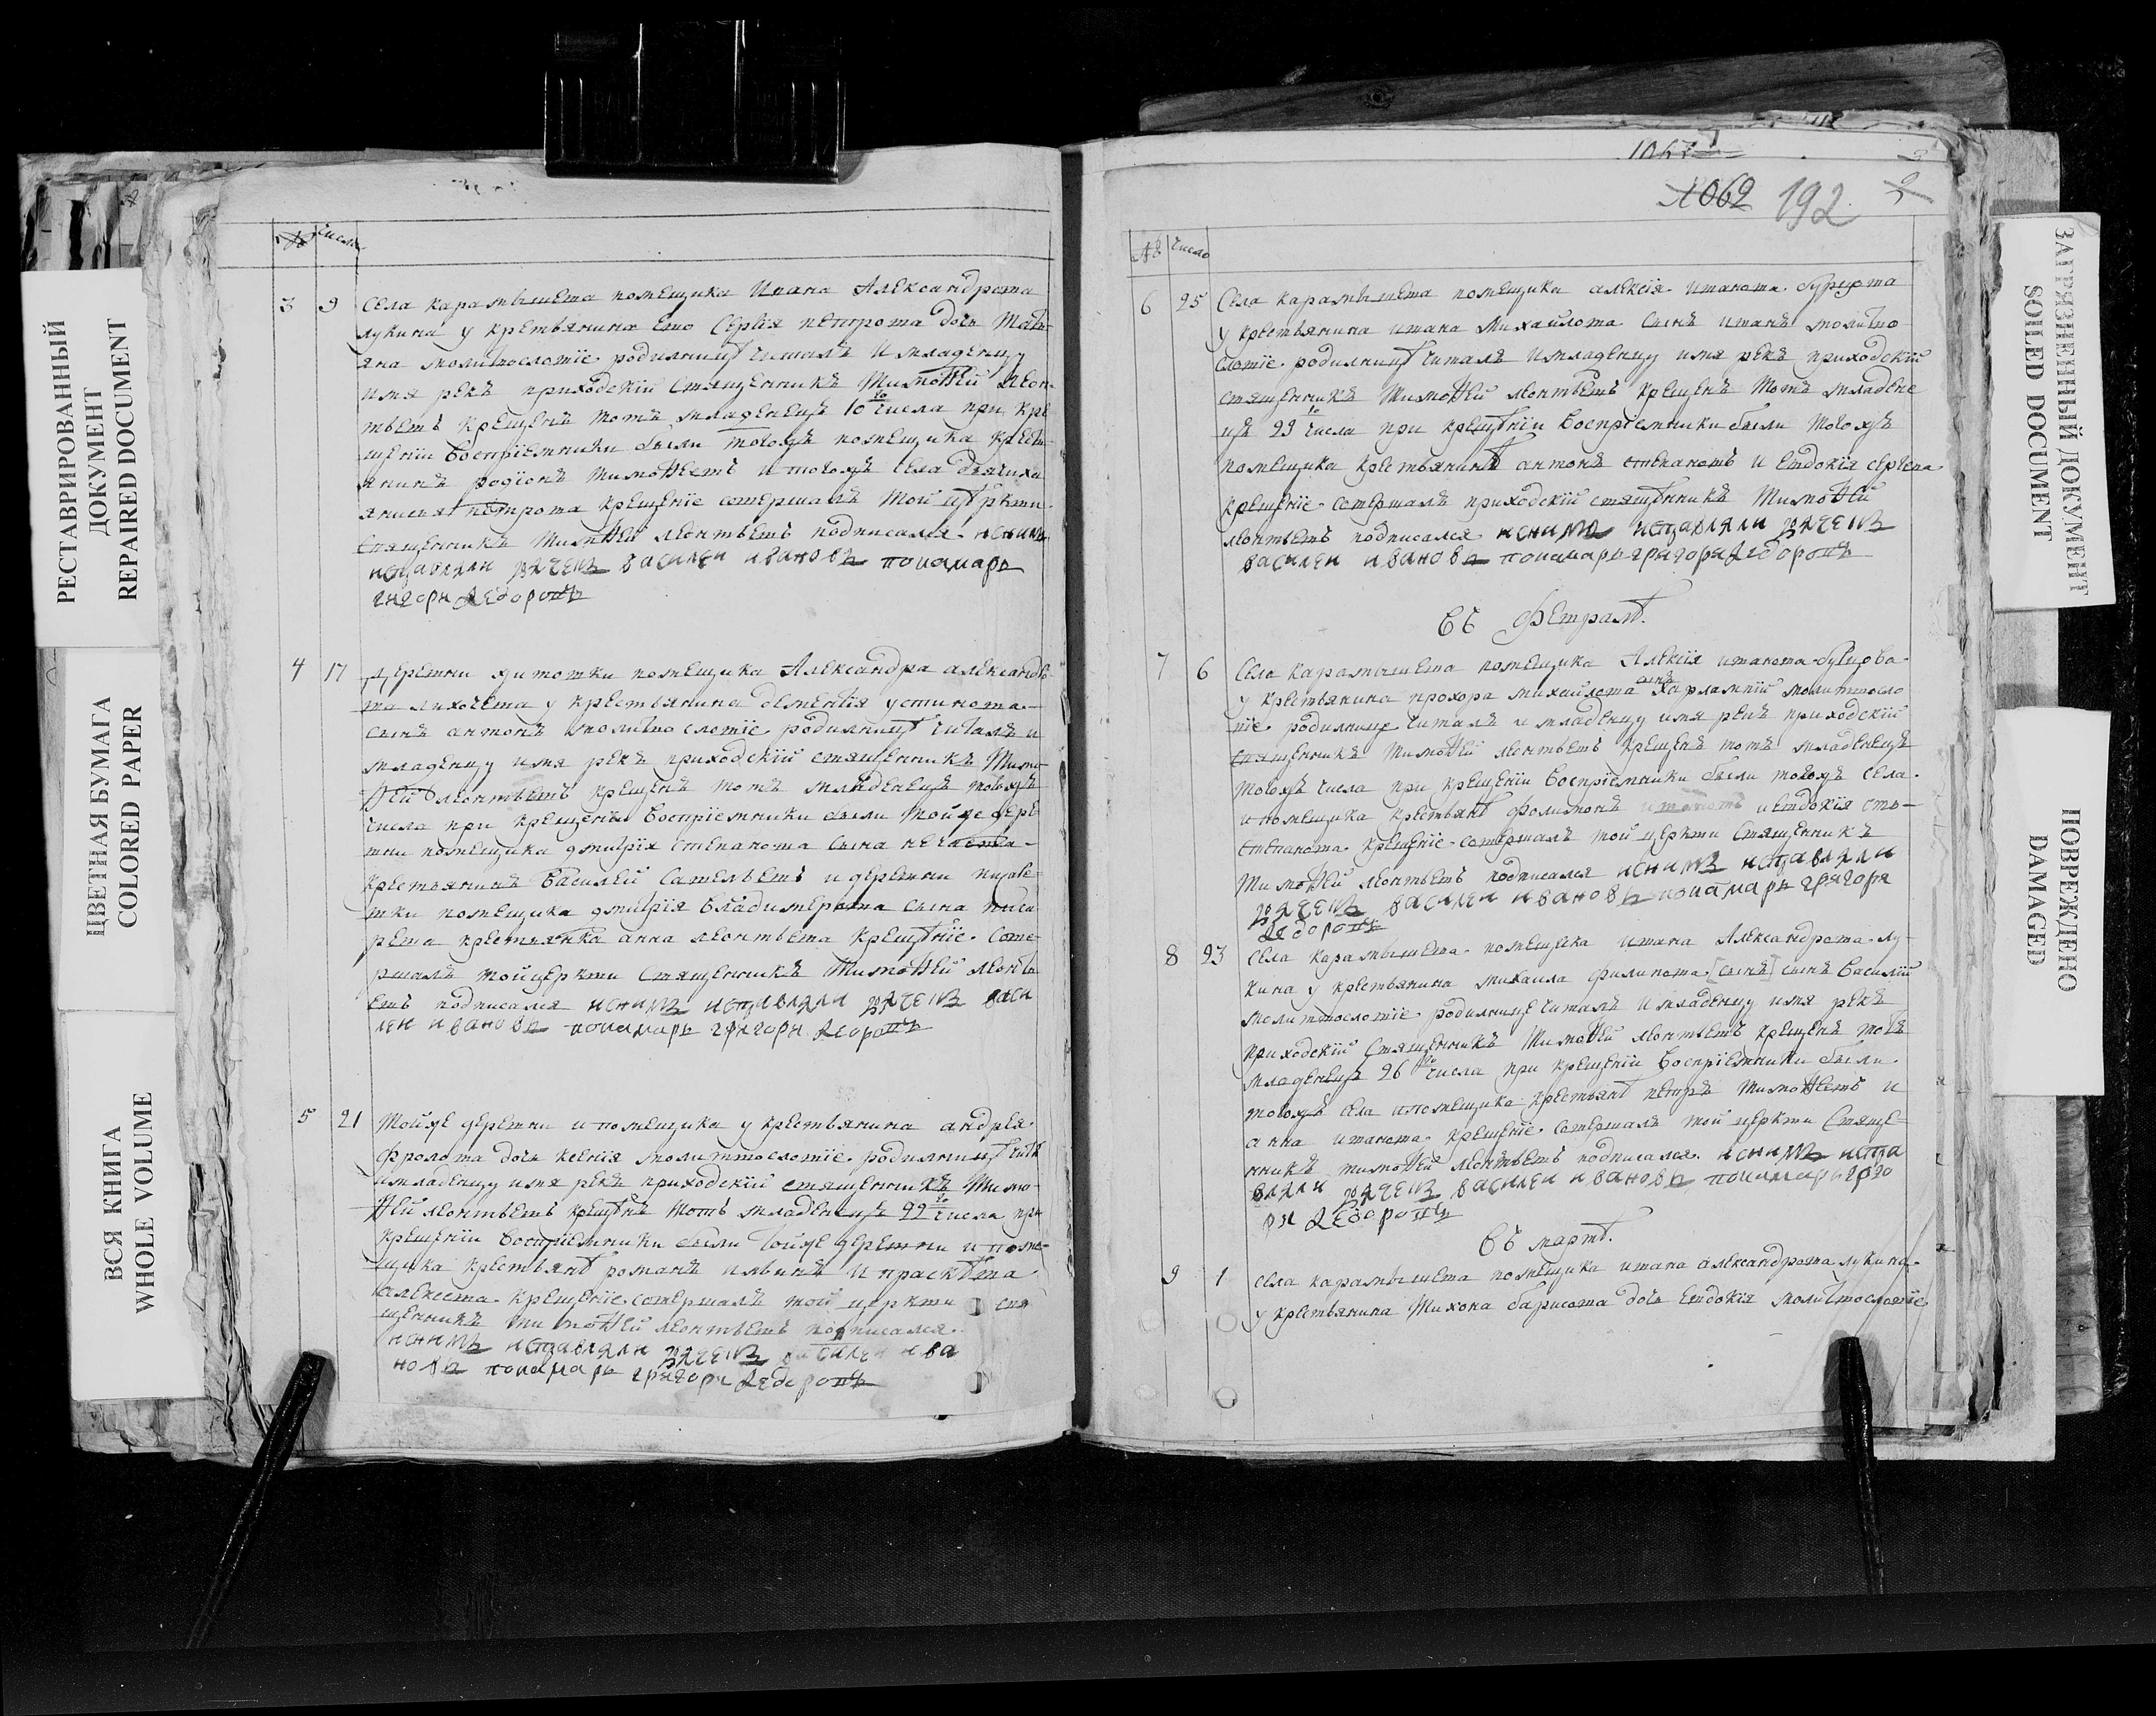 РЕСТАВРИРОВАННЫЙ
ДОКУМЕНТ
REPAIRED DOCUMENT
ЦВЕТНАЯ БУМАГА
COLORED PAPER
ВСЯ КНИГА
WHOLE VOLUME
число
3 9 Села карамышева помещика Ивана Александрова
лукина у крестьянина ево Сергея петрова дочь Тать
яна молитвословие родилницѣ читалъ и младенцу
имя рекъ приходский священникъ Тимоѳей леон
тьевъ крещенъ тотъ младенецъ 10го числа при кре
щении восприемники были тогожъ помещика кресть
янинъ родионъ тимоѳеевъ и тогожъ села
петрова крещение совершалъ той церкви
священникъ Тимоѳей леонтьевъ подписался иснимъ
исправляли дячекъ василеи ивановъ понамарь
григори ѳедоровъ
4 17 деревни помещика Александра александро
ва лихочева у крестьянина дементия устинова
сынъ антонъ молитвословие родилницѣ читалъ и
младенцу имя рекъ приходский священникъ Тимо
ѳей леонтьевъ крещенъ тотъ младенецъ тогожъ
числа при крещении восприемники были тойже дере
вни помещика дмитрия степанова сына
крестьянинъ Василей Савельевъ и деревни
вки помещика дмитрия владимерова сына писа
рева крестьянка анна леонтьева крещѣние сове
ршалъ той церкви священникъ Тимоѳей леонть
евъ подписался иснимъ исправляли дячекъ васи
леи ивановъ понамарь григори ѳедоровъ
5 21 Тойже деревни и помещика у крестьянина андрея
фролова дочь ксения молитвословие родилницѣ чита
и младенцу имя рекъ приходский священникъ Тимо
ѳей леонтьевъ крещѣнъ тотъ младенецъ 22го числа при
крещении восприемники были тойже деревни и поме
щика крестьянѣ романъ и прасковѣа
алексеева крещение совершалъ той церкви свя
щенникъ тимоѳей леонтьевъ подписался
иснимъ исправляли дячекъ василеи ива
новъ понамарь григори ѳедоровъ
1062 192
№ число
6 25 Села карамышева помещика алексея иванова бурцова
у крестьянина ивана Михайлова сынъ иванъ молитво
словие родилницѣ читалъ и младенцу имя рекъ приходский
священникъ Тимоѳей леонтьевъ крещенъ тотъ младене
цъ 29го числа при крещѣнии восприемники были тогожъ
помещика крестьянинъ антонъ степановъ и евдокия сергеева
крещение совершалъ приходский священникъ Тимоѳей
леонтьевъ подписался иснимъ исправляли дячекъ
василеи ивановъ понамарь григори ѳедоровъ
въ Февралѣ.
7 6 Села карамышева помещика Алексия иванова бурцова
у крестьянина прохора михайлова сынъ харлампий молитвосло
вие родилнице читалъ и младенцу имя рекъ приходский
священникъ Тимоѳей леонтьевъ крещенъ тотъ младенецъ
тогожъ числа при крещении восприемники были тогожъ села
и помещика крестьянѣ филимонъ и евдокия
степанова крещение совершалъ той церкви священникъ
Тимоѳей леонтьевъ подписался иснимъ исправляли
дячекъ василеи ивановъ понамарь григори
ѳедоровъ
8 23 Села карамышева помещика ивана Александрова лу
кина у крестьянина михаила филипова [сынъ] сынъ Василий
молитвословие родилнице читалъ и младенцу имя рекъ
приходский священникъ Тимоѳей леонтьевъ крещенъ тотъ
младенецъ 26го числа при крещении восприемники были
тогожъ села и помещика крестьянѣ петръ тимоѳеевъ и
анна иванова крещение совершалъ той церкви священ
никъ тимоѳей леонтьевъ подписался иснимъ испра
вляли дячекъ василеи ивановъ понамарь григо
ри ѳедоровъ
въ мартѣ.
9 1 села карамышева помещика ивана александрова лукина
у крестьянина Тихона барисова дочь евдокия молитвословие
ЗАГРЯЗНЕННЫЙ ДОКУМЕНТ
SOILED DOCUMENT
ПОВРЕЖДЕНО
DAMAGED